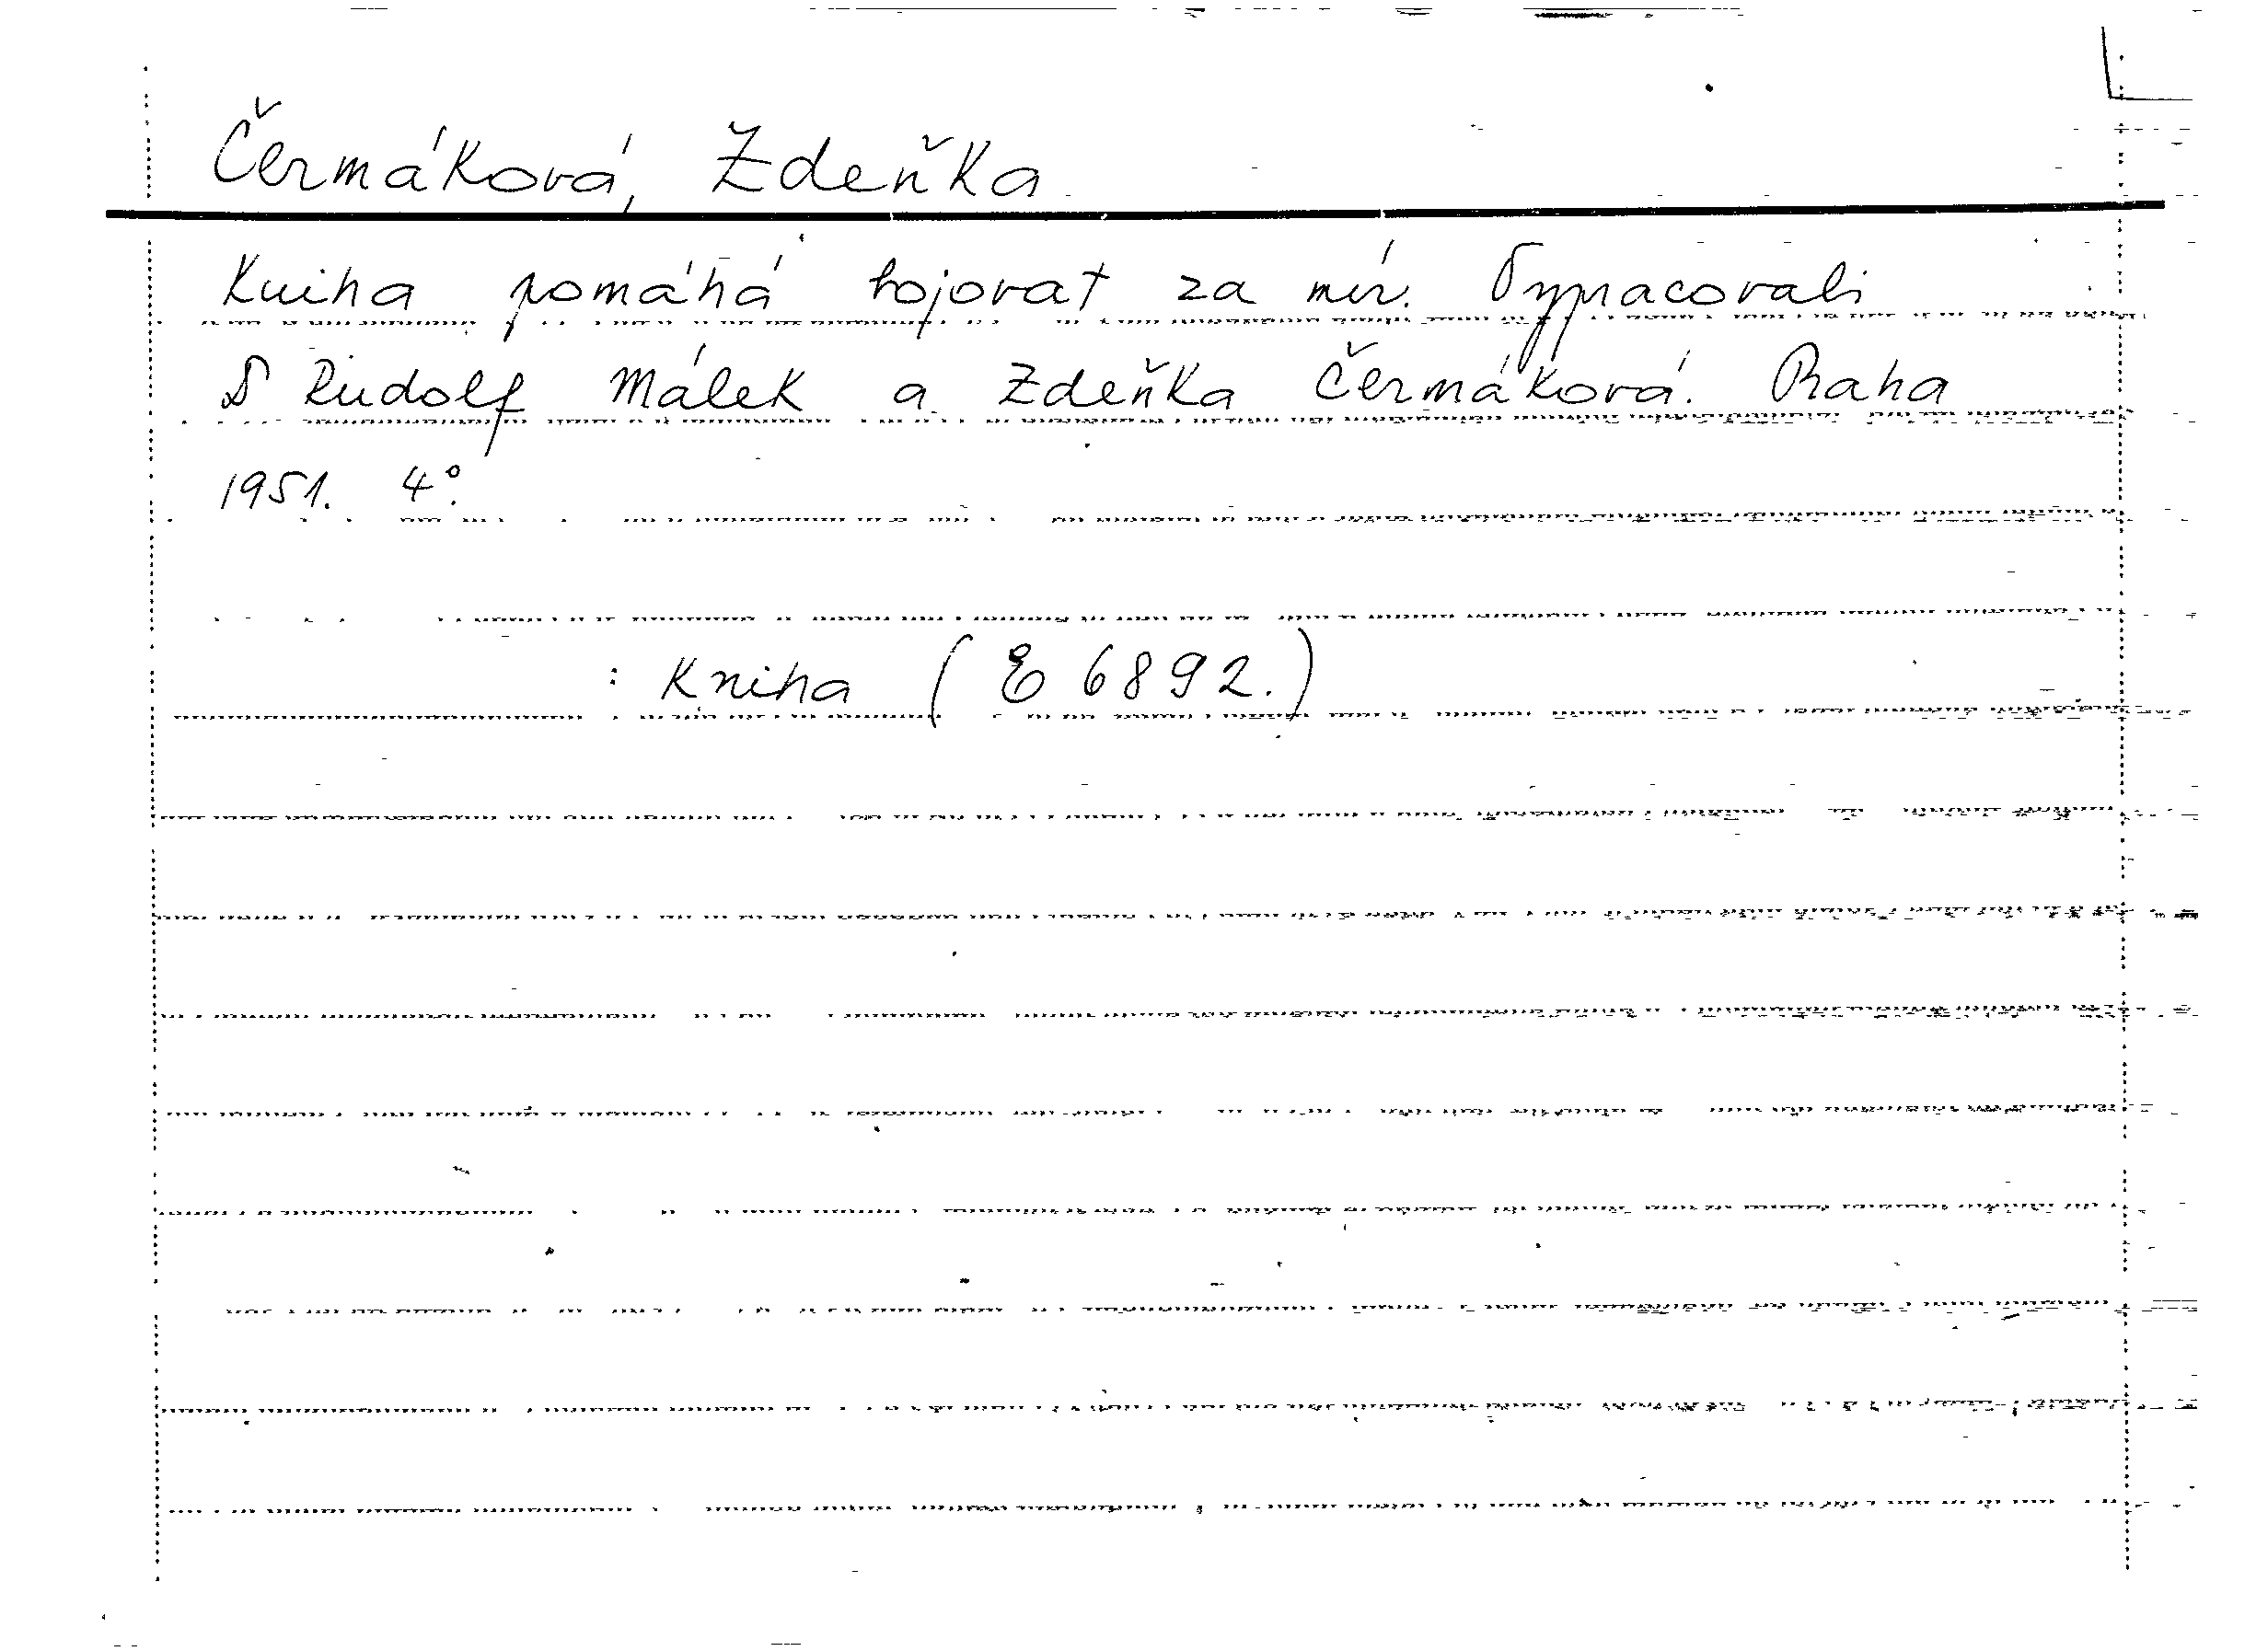 Čermáková, Zdeňka
Kniha pomáhá bojovat za mír. Vypracovali
Rudolf Málek a Zdeňka Čermáková. Praha
1951. 4°.
: Kniha (E 6892.)